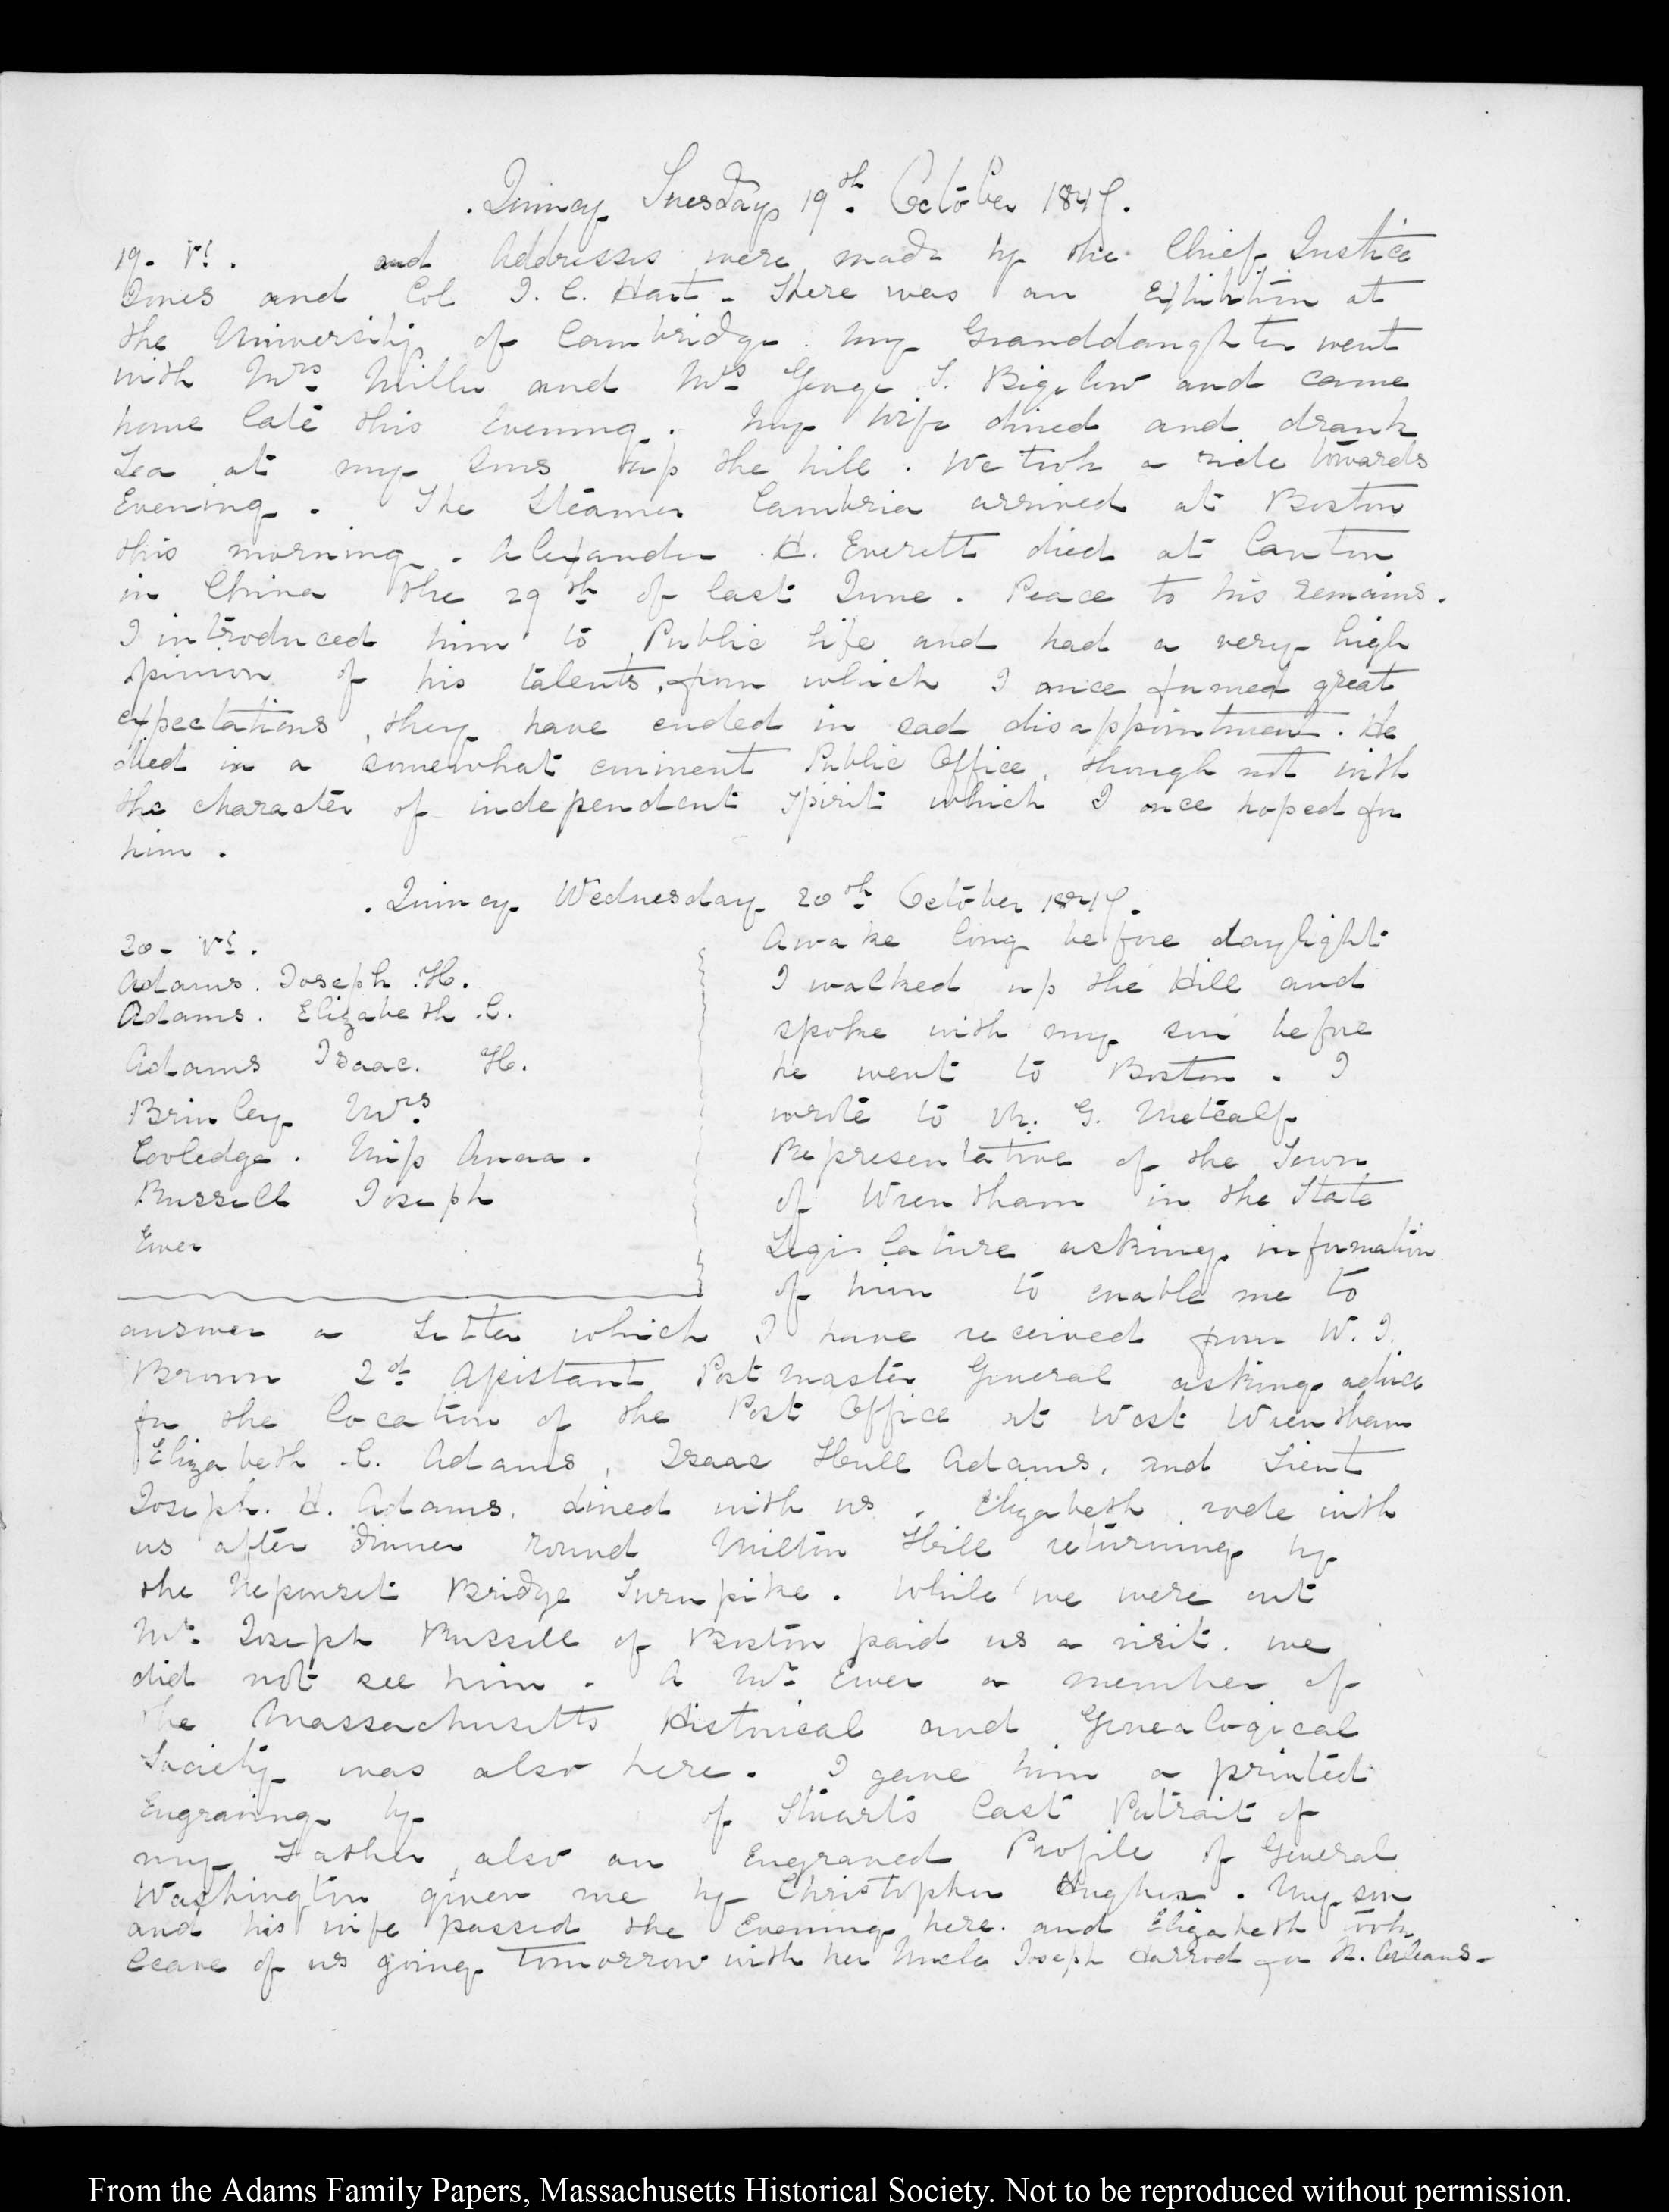 . Quincy Tuesday 19th. October 1847.
19. V:. and Addresses were made by the Chief Justice
Jones and Col J. C. Hart. There was an Exhibition at
the University of Cambridge. My Granddaughter went
with Mrs. Miller and Mrs George T. Bigelow and came
home late this Evening. My Wife dined and drank
Tea at my Sons up the hill. We took a ride towards
Evening. The Steamer Cambria arrived at Boston
this morning. Alexander .H. Everett died at Canton
in China the 29th of last June. Peace to his Remains.
I introduced him to Public life and had a very high
opinion of his talents, from which I once formed great
expectations, they have ended in sad disappointment. He
died in a somewhat eminent Public Office, though not with
the character of independent spirit which I once hoped for
him.
. Quincy Wednesday 20th. October 1847.
20. V:.
Adams. Joseph .H.
Adams. Elizabeth .C.
Adams Isaac. H.
Brinley Mrs.
Cooledge. Miss Anna.
Russell Joseph
Ewer
Awake long before daylight
I walked up the Hill and
spoke with my son before
he went to Boston. I
wrote to M. G. Metcalf
Representative of the Town
of Wrentham in the State
Legislature asking information
of him to enable me to
answer a Letter which I have received from W. J.
Brown 2d. Assistant Post Master General asking advice
for the location of the Post Office at West Wrentham
Elizabeth .C. Adams, Isaac Hull Adams, and Lieut
Joseph. H. Adams, dined with us. Elizabeth rode with
us after dinner round Milton Hill returning by
the Neponset Bridge Turnpike. While we were out
Mr. Joseph Russell of Boston paid us a visit. we
did not see him. A Mr. Ewer a member of
the Massachusetts Historical and Genealogical
Society was also here. I gave him a printed
Engraving by of Stuarts last Potrait of
my Father, also an Engraved Profile of General
Washington given me by Christopher Hughes. My son
and his wife passed the Evening here. and Elizabeth took
leave of us going tomorrow with her Uncle Joseph Harrod for N. Orleans.
From the Adams Family Papers, Massachusetts Historical Society. Not to be reproduced without permission.